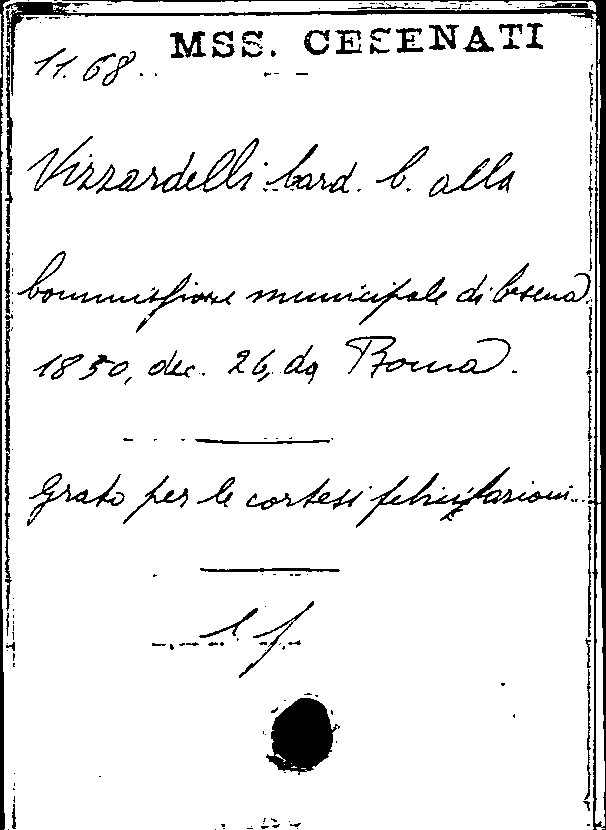 MSS. CESENATI
11.68
Vizzardelli Card. C. alla
Commissione municipale di Cesena
1850, dec. 26, da Roma.
Grato per le cortesi felicitazioni
1 f